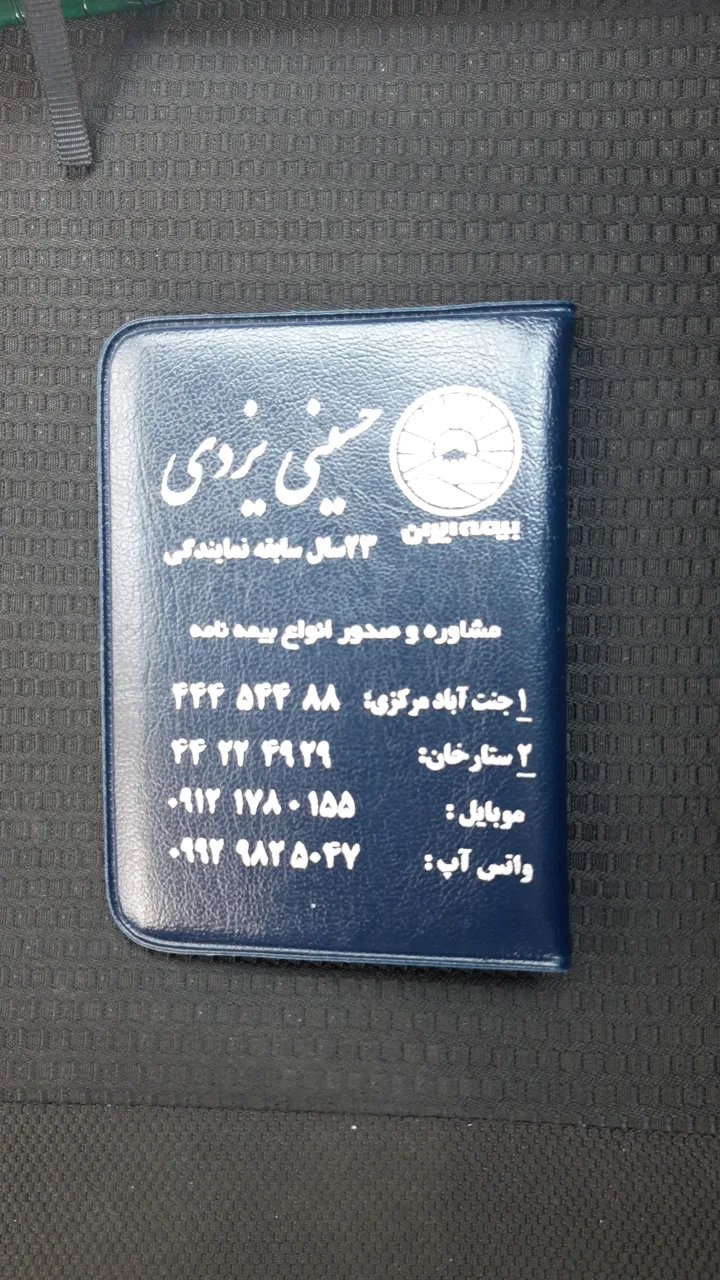 حسینی یزدی
بیمه ایران
۲۳سال سابقه نمایندگی
مشاوره و صدور انواع بیمه نامه
۱ جنت آباد مرکزی: ۴۴۴ ۵۴۴ ۸۸
۲ ستارخان: ۴۴ ۲۲ ۴۹۲۹
موبایل: ۰۹۱۲ ۱۷۸۰ ۱۵۵
واتس آپ: ۰۹۹۲ ۹۸۲۵۰۴۷